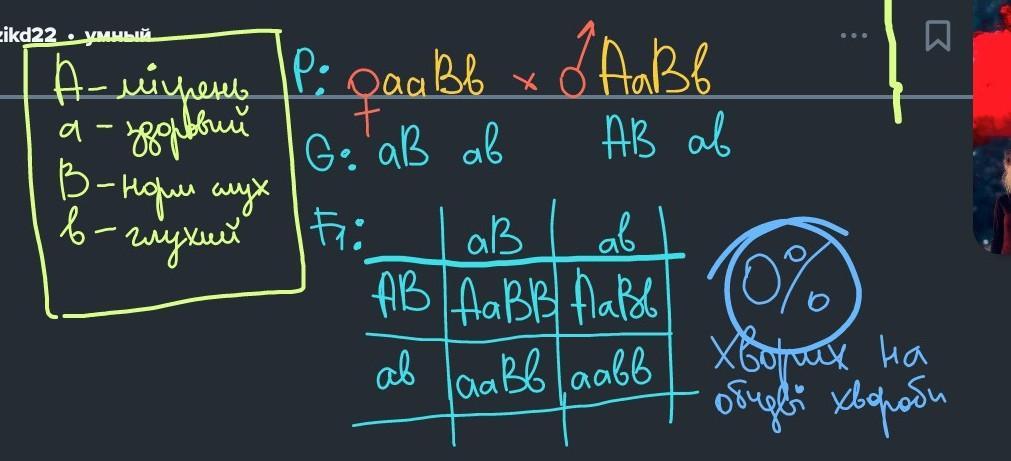 zikd22 • умный
А – мігрень
а – здоровий
В – норм слух
в – глухий
P: ♀ aaBb × ♂ AaBb
G: aB ab AB ab
F1:
aB ab
AB AaBB AaBb
ab aaBb aabb
0%
Хворих на
обидві хвороби